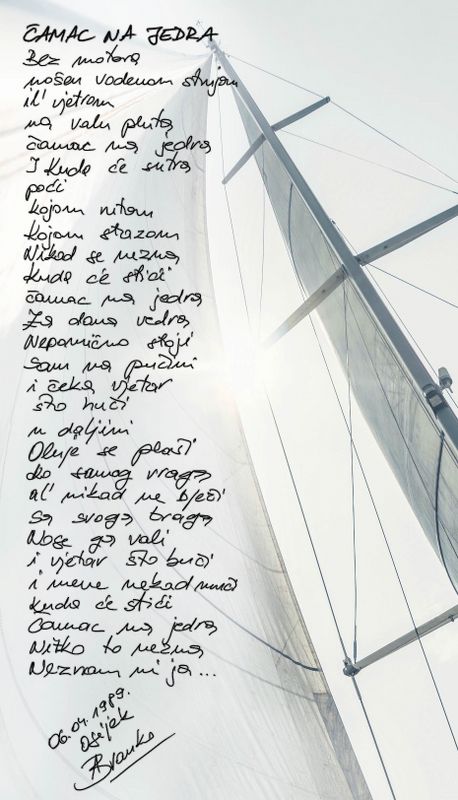 ČAMAC NA JEDRA
Bez motora
nošen vodenom strujom
il' vjetrom
na valu pluta
čamac na jedra
I kuda će sutra
poći
kojom nitom
kojom stazom
Nikad se nezna
kuda će stići
čamac na jedra
Za dana vedra
Nepomično stoji
sam na pučini
i čeka vjetar
što huči
u daljini
Oluje se plaši
do samog vraga
al' nikad ne bježi
sa svoga traga
Nose ga vali
i vjetar što buči
i mene nekad muči
kuda će stići
Čamac na jedra
Nitko to nezna
Neznam ni ja...
06.04.1989.
Osijek
Branko